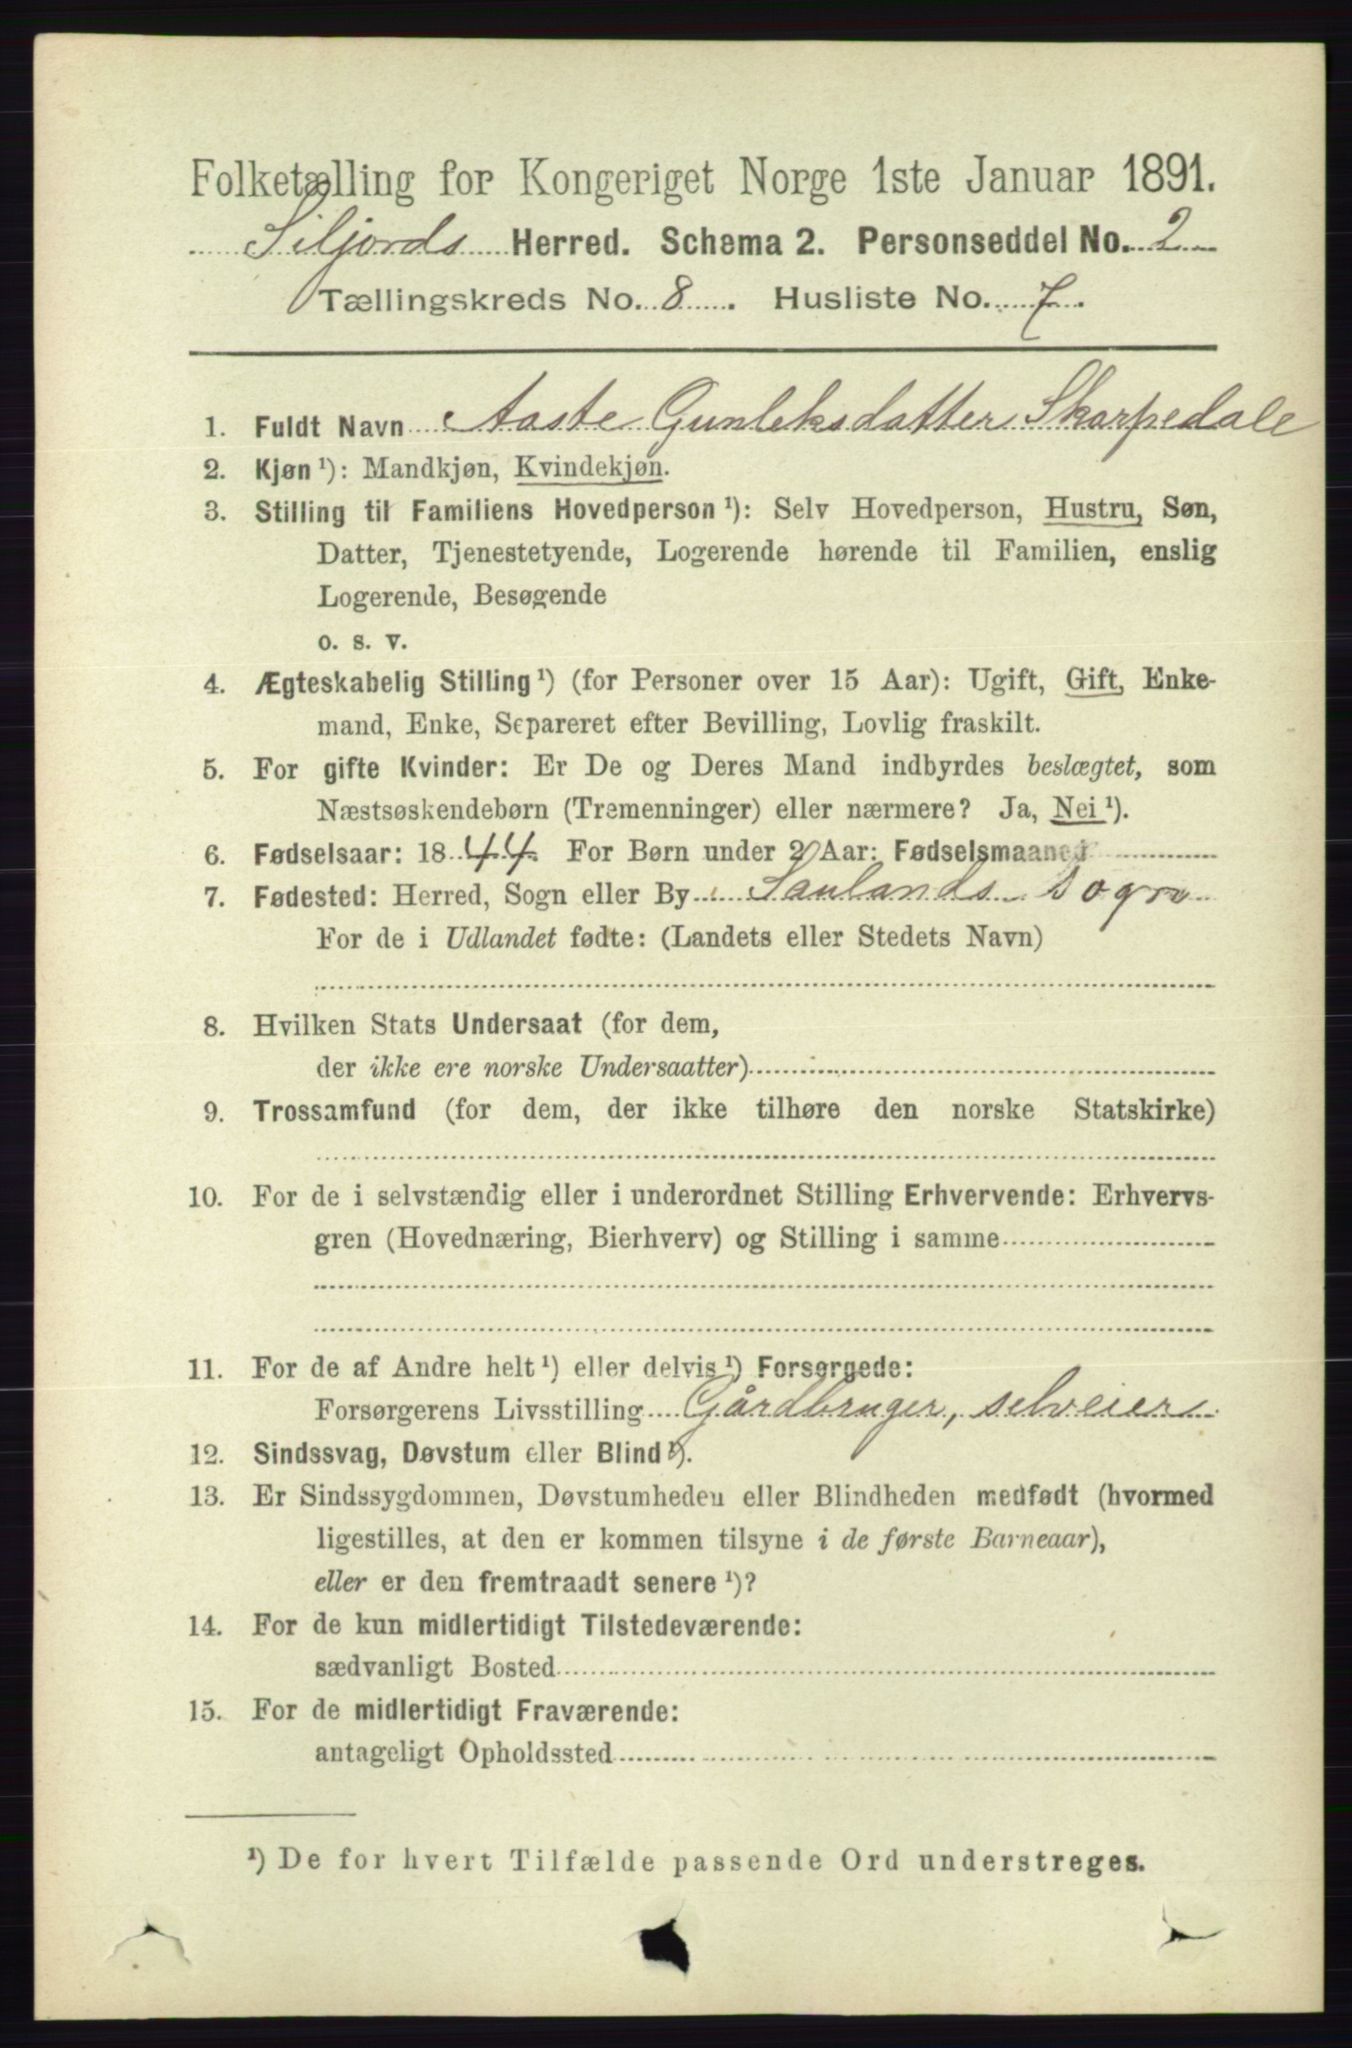 Folketælling for Kongeriget Norge 1ste Januar 1891.
Siljords Herred. Schema 2. Personseddel No. 2
Tællingskreds No. 8. Husliste No. 7.
1. Fuldt Navn Aaste Gunleksdatter Skarpedale
2. Kjøn ¹): Mandkjøn, Kvindekjøn.
3. Stilling til Familiens Hovedperson ¹): Selv Hovedperson, Hustru, Søn,
Datter, Tjenestetyende, Logerende hørende til Familien, enslig
Logerende, Besøgende
o. s. v.
4. Ægteskabelig Stilling ¹) (for Personer over 15 Aar): Ugift, Gift, Enke-
mand, Enke, Separeret efter Bevilling, Lovlig fraskilt.
5. For gifte Kvinder: Er De og Deres Mand indbyrdes beslægtet, som
Næstsøskendebørn (Tremenninger) eller nærmere? Ja, Nei ¹).
6. Fødselsaar: 1844. For Børn under 2 Aar: Fødselsmaaned
7. Fødested: Herred, Sogn eller By Saulands sogn
For de i Udlandet fødte: (Landets eller Stedets Navn)
8. Hvilken Stats Undersaat (for dem,
der ikke ere norske Undersaatter)
9. Trossamfund (for dem, der ikke tilhøre den norske Statskirke)
10. For de i selvstændig eller i underordnet Stilling Erhvervende: Erhvervs-
gren (Hovednæring, Bierhverv) og Stilling i samme
11. For de af Andre helt ¹) eller delvis ¹) Forsørgede:
Forsørgerens Livsstilling Gårdbruger, selveier
12. Sindssvag, Døvstum eller Blind ¹).
13. Er Sindssygdommen, Døvstumheden eller Blindheden medfødt (hvormed
ligestilles, at den er kommen tilsyne i de første Barneaar),
eller er den fremtraadt senere ¹)?
14. For de kun midlertidigt Tilstedeværende:
sædvanligt Bosted
15. For de midlertidigt Fraværende:
antageligt Opholdssted
¹) De for hvert Tilfælde passende Ord understreges.